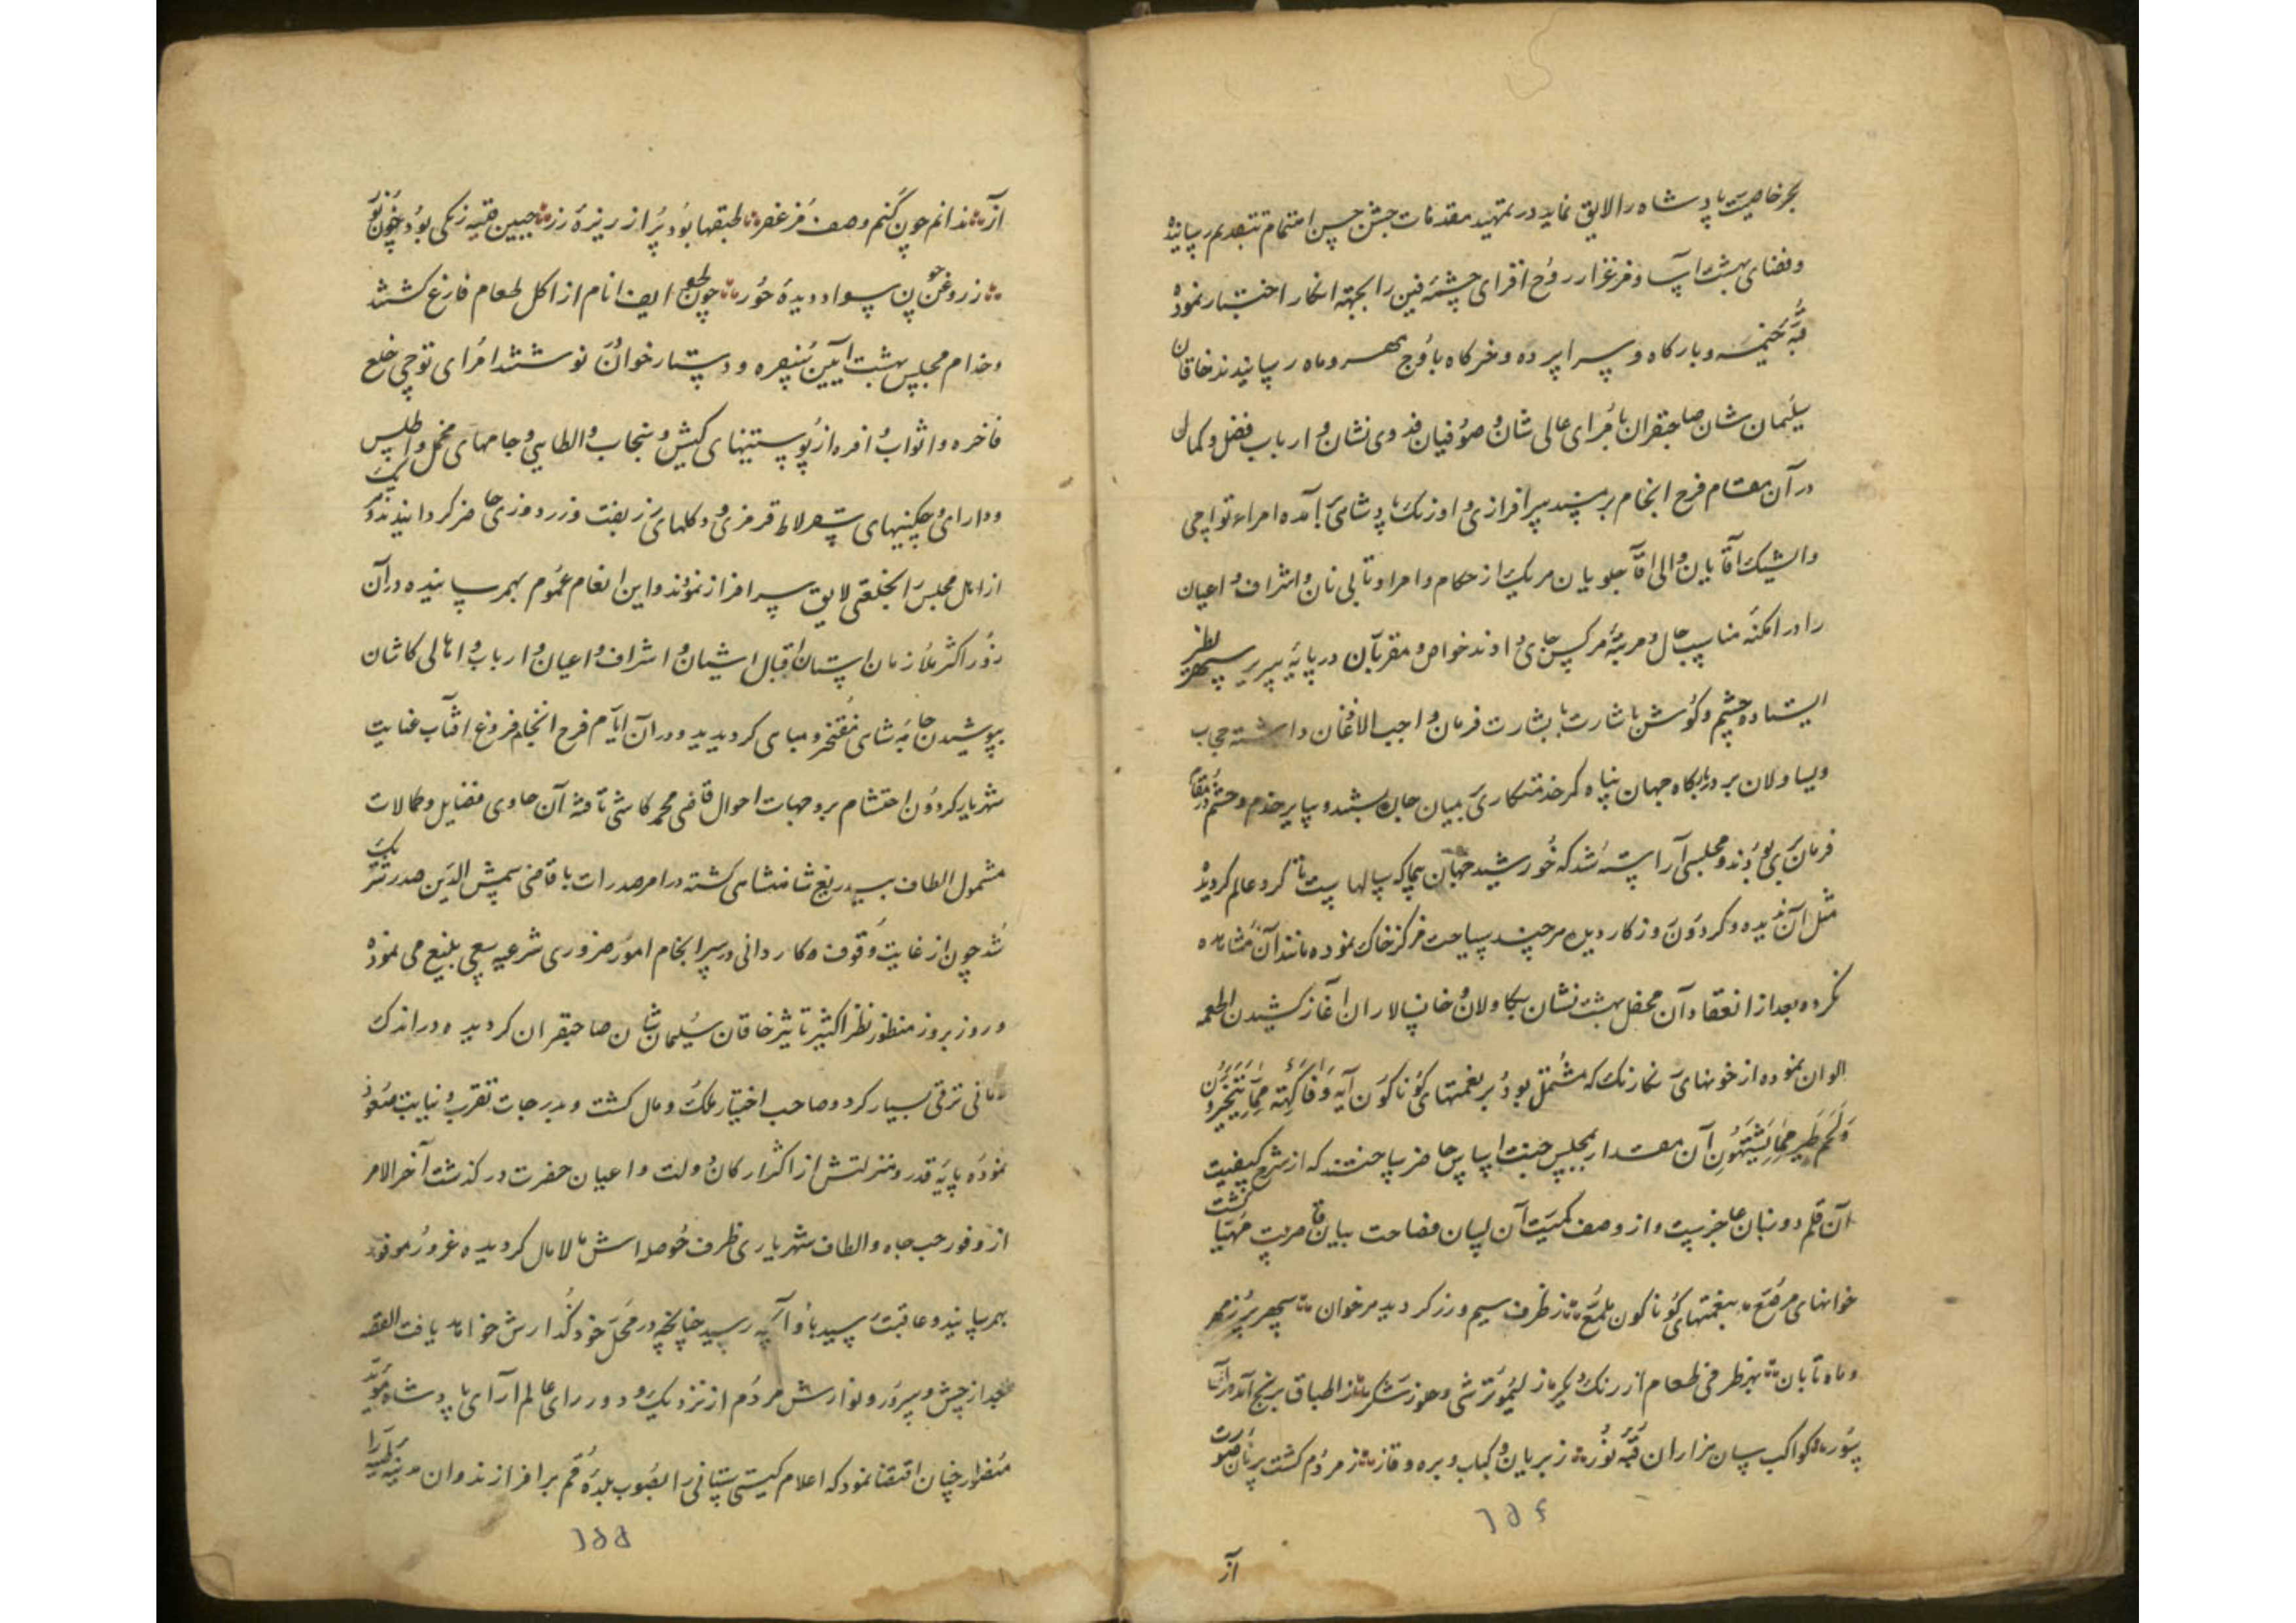 بحر خاصیت پادشاه را لایق نماید در تمهید مقدمات جشن حسن اهتمام بتقدیم رسانیده
و فضای بهشت آسا و مرغزار روح افزای چشمه فین را بجهة انکار اختیار نموده
قبه خیمه و بارکاه و سراپرده و خرکاه باوج مهر و ماه رسانیدند خاقان
سلیمان شان صاحبقران بامرای عالی شان و صوفیان فدوی نشان و ارباب فضل و کمال
در آن مقام فرح انجام بر مسند سرافرازی و اورنک پادشاهی آمده امراء تواچی
و ایشیک آقایان و الی آقا جلویان هریک از حکام و امرا و تالی نان و اشراف و اعیان
را در امکنه مناسب حال و مرتبه هرکس جای دادند خواص و مقربان در پایه سریر سپهر نظیر
ایستاده چشم و کوش باشارت با بشارت فرمان واجب الاذعان داشته حجاب
و یساولان بر درباکاه جهان پناه کمر خدمتکاری بمیان جان بستند و سایر خدم و حشم در مقام
فرمان بری بودند و مجلسی آراسته شد که خورشید جهان پیما که سالهاست تا کرد عالم کردیده
مثل آن ندیده و کردون دوزکار دیده هرچند سیاحت مرکز خاک نموده مانند آن مشاهده
نکرده بعد از انعقاد آن محفل بهشت نشان بکاولان و خانسالاران آغاز کشیدن اطعمه
الوان نموده از خونهای نکارنک که مشتمل بود بر نعمتهای کوناکون آیه وَفَاكِهَةٍ مِمَّا يَتَخَيَّرُونَ
وَلَحْمِ طَيْرٍ مِمَّا يَشْتَهُونَ آن مقدار بمجلس جنت اساس حاضر ساختند که از شرح کیفیت
آن قلم دو زبان عاجز است و از وصف کمیت آن لسان فصاحت بیان قاصرست مهیا کشت
خوانهای مرصع بنعمتهای کوناکون ملمع ز ظرف سیم و زر کردید هر خوان سپهر پر ز مهر
و ماه تابان بهر ظرفی طعام از رنک دیکر ز لیمو ترشی و حلوز شکر ز اطباق برنج آمد در آن
سور کواکب سان هزاران قبه نور ز بریان و کباب و بره و قاز ز مردم کشت بر نان صورت
۱۵۴
آز
آز ندانم چون کنم وصف مزعفر طبقها بود پر از ریزه زر جبین قلیه زنکی بود چون نور
ز روغن چون سواد دیده حور چون طوایف انام از اکل طعام فارغ کشتند
و خدام مجلس بهشت آیین سفره و دستار خوان نوشتند امرای توچی خلع
فاخره و اثواب وافره از پوستینهای کیش و سنجاب و الطایی و جامهای مخمل و اطلس
و دارای و چکنیهای سقرلاط قرمزی و دکلهای زربفت و زردوزی حاضر کردانیدند و هریک
از اهل مجلس را بخلعتی لایق سرافراز نمودند و این انعام عموم بهم رسانیده در آن
روز اکثر ملازمان آستان اقبال آشیان و اشراف و اعیان و ارباب و اهالی کاشان
بپوشیدن جامه شاهی مفتخر و مباهی کردیدند و در آن ایام فرح انجام فروغ افتاب عنایت
شهریار کردون احتشام بر وجهات احوال قاضی محمد کاشی تافته آن حاوی فضایل و کمالات
مشمول الطاف بیدریغ شاهنشاهی کشته در امر صدرات با قاضی شمس الدین صدر شریک
شد چون از غایت وقوف و کاردانی در سرانجام امور ضروری شرعیه سعی بلیغ می نموده
و روز بروز منظور نظر اکثیر تاثیر خاقان سلیمان شان صاحبقران کردیده در اندک
زمانی ترقی بسیار کرد و صاحب اختیار ملک و مال کشت و بدرجات تقرب و نیابت صعود
نموده پایه قدر و منزلتش از اکثر ارکان دولت و اعیان حضرت در کذشت آخر الامر
از وفور حب جاه و الطاف شهریاری ظرف حوصله اش مالامال کردیده غرور موفور
بهم رسانید و عاقبت رسید باو آنچه رسید چنانچه در محل خود کذارش خواهد یافت القصه
بعد از جشن و سرور و نوازش مردم از نزدیک و دور رای عالم آرای پادشاه مؤید
منصور چنان اقتضا نمود که اعلام کیتی ستانی را بصوب بلده قم برافرازند و آن مدینه طیبه را
۱۵۵